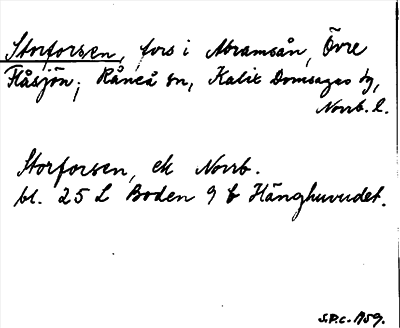 Storforsen, fors i Abramsån, Övre
Flåsjön; Råneå sn, Kalix Domsagas tg,
Norrb. l.
Storforsen, ek Norrb.
bl. 25 L Boden 9 b Hänghuvudet.
S.P.C. 1959.